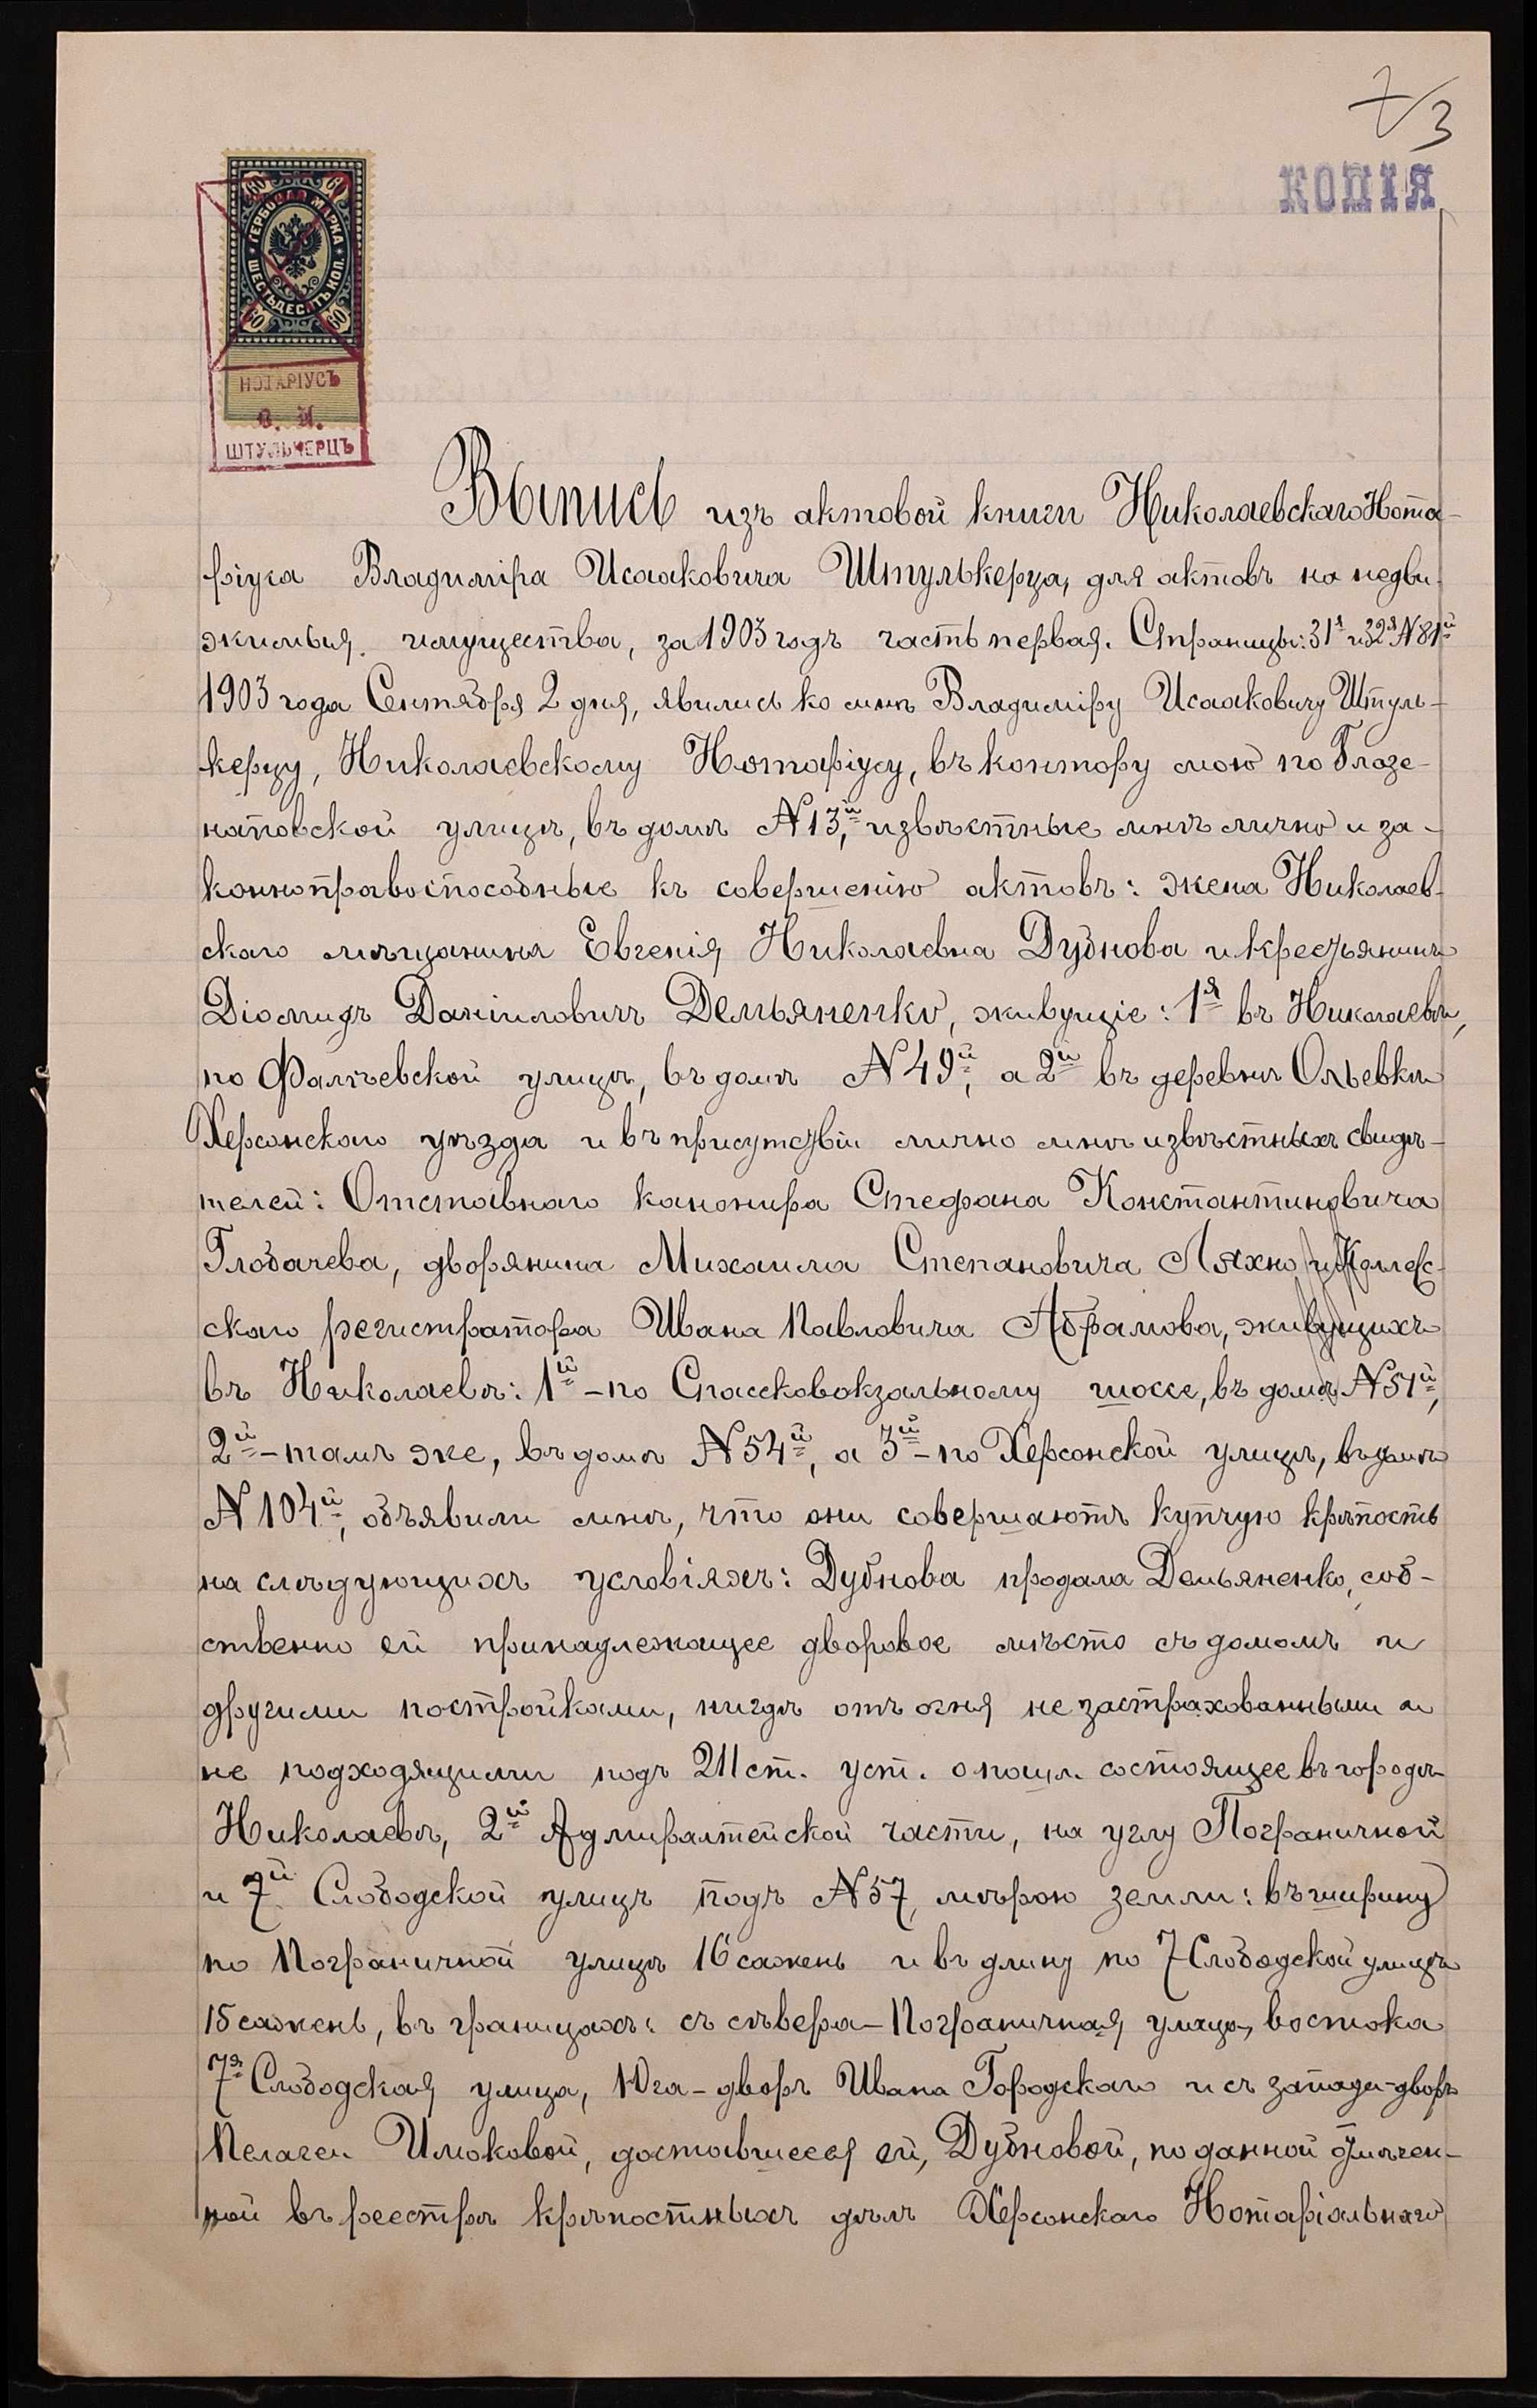 7/3
КОПІЯ
60 60
ГЕРБОВАЯ МАРКА
ШЕСТЬДЕСЯТЪ КОП.
60 60
НОТАРІУСЪ
В. И.
ШТУЛЬКЕРЦЪ
Выпись изъ актовой книги Николаевскаго Нота-
ріуса Владиміра Исааковича Штулькерца, для актовъ на недви-
жимыя имущества, за 1903 годъ часть первая. Страницы: 31я и 32я N 81й
1903 года Сентября 2 дня, явились ко мнѣ Владиміру Исааковичу Штуль-
керцу, Николаевскому Нотаріусу, въ контору мою по Глазе-
наповской улицѣ, въ домѣ N 13й, извѣстные мнѣ лично и за-
конноправоспособные къ совершенію актовъ: жена Николаев-
скаго мѣщанина Евгенія Николаевна Дубнова и крестьянинъ
Діомидъ Даніиловичъ Демьяненко, живущіе: 1я въ Николаевѣ,
по Фалѣевской улицѣ, въ домѣ N 49й, а 2й въ деревнѣ Ольевкѣ
Херсонскаго уѣзда и въ присутствіи лично мнѣ извѣстныхъ свидѣ-
телей: Отставнаго канонира Стефана Константиновича
Глобачева, дворянина Михаила Степановича Ляхно и Коллеж-
скаго регистратора Ивана Павловича Абрамова, живущихъ
въ Николаевѣ: 1й – по Спассковокзальному шоссе, въ домѣ N 51й,
2й – тамъ же, въ домѣ N 54й, а 3й – по Херсонской улицѣ, въ домѣ
N 104й, объявили мнѣ, что они совершаютъ купчую крѣпость
на слѣдующихъ условіяхъ: Дубнова продала Демьяненко, соб-
ственно ей принадлежащее дворовое мѣсто съ домомъ и
другими постройками, нигдѣ отъ огня не застрахованными и
не подходящими подъ 211 ст. уст. о пошл. состоящее въ городѣ
Николаевѣ, 2й Адмиралтейской части, на углу Пограничной
и 7й Слободской улицъ подъ N 57, мѣрою земли: въ ширину
по Пограничной улицѣ 16 сажень и въ длину по 7 Слободской улицѣ
15 сажень, въ границахъ: съ сѣвера – Пограничная улица, востока
7я Слободская улица, Юга – дворъ Ивана Городскаго и съ запада – дворъ
Пелагеи Имоковой, доставшееся ей, Дубновой, по данной отмѣчен-
ной въ реестрѣ крѣпостныхъ дѣлъ Херсонскаго Нотаріальнаго